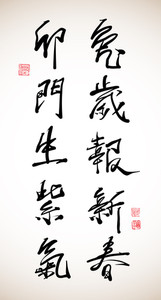 兔歲報新春
卯門生紫氣